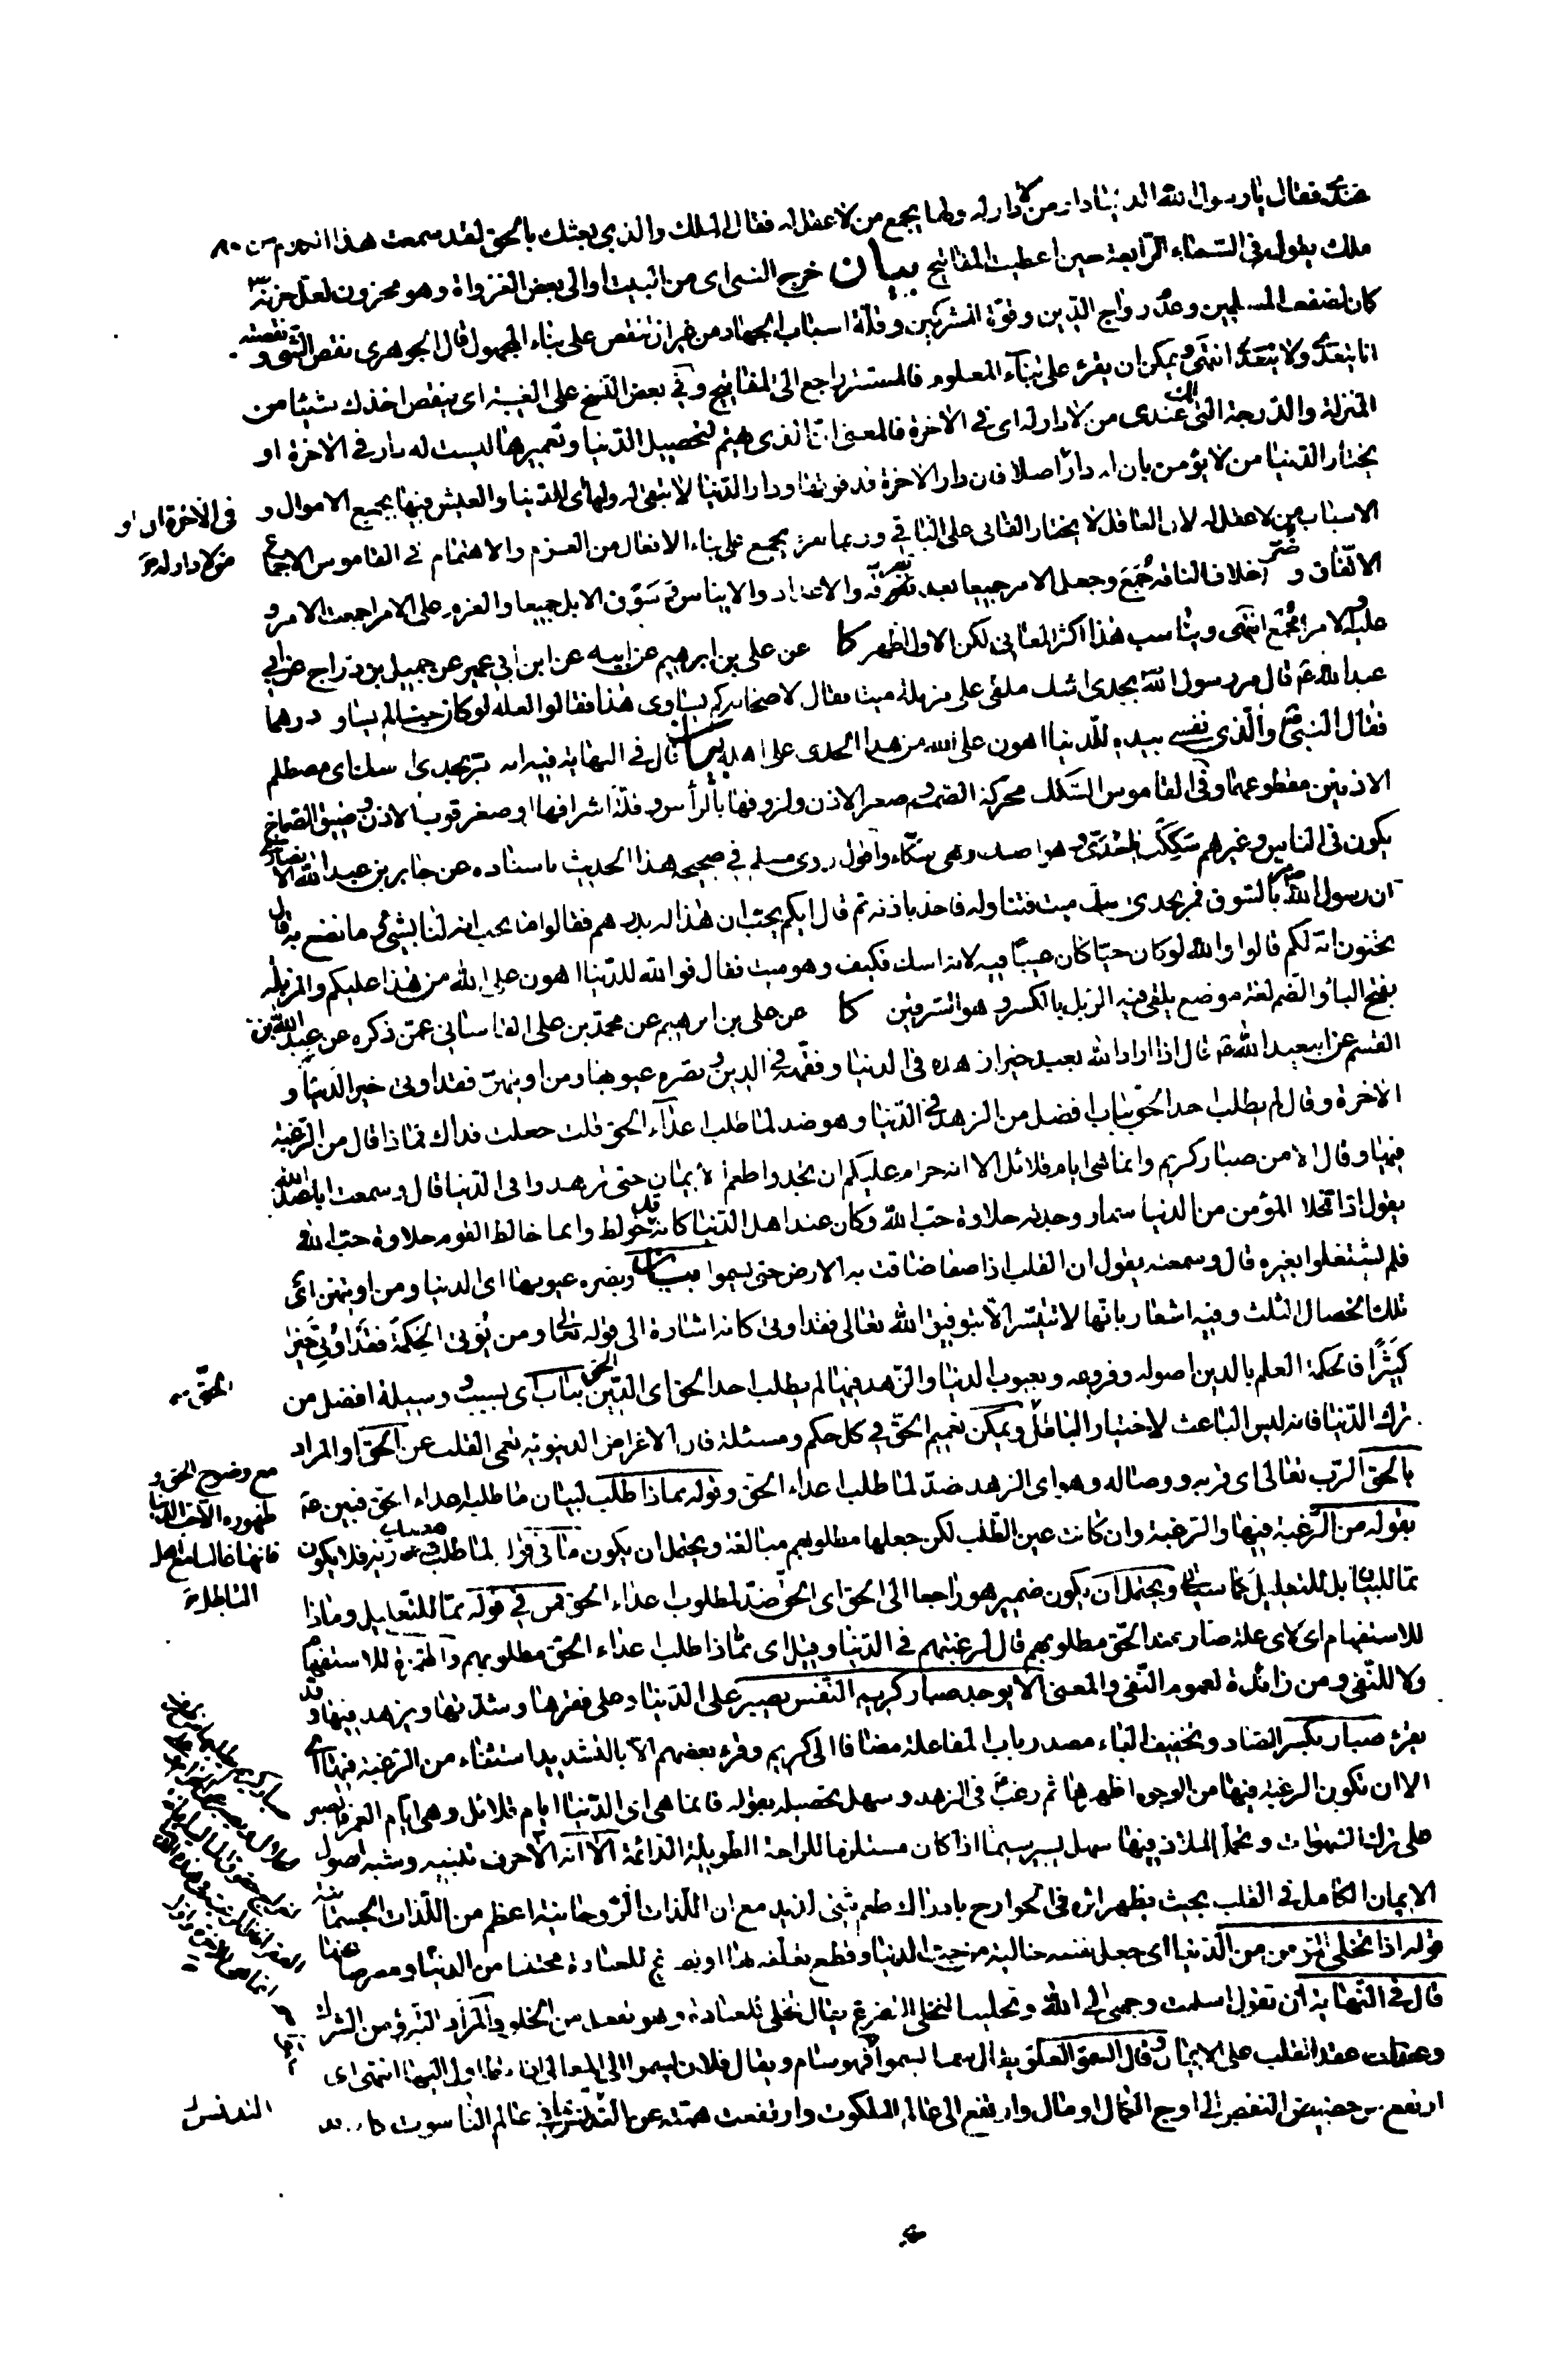 عندى فقال يا رسول الله الدنيا دار من لا دار له ولها يجمع من لا عقل له فقال الملك والذى بعثك بالحق لقد سمعت هذا الكلام من
ملك يقوله فى السماء الرابعة حين اعطيت المفاتيح بيان خرج النبى اى من البيت او الى بعض الغزواة وهو محزون لعل حزنه ص
كان لضعف المسلمين وعدم رواج الدين وقوة المشركين وقلة اسباب الجهاد من غير ان تنقص على بناء المجهول قال الجوهرى نقص الشئ ونقصته
انا يتعدى ولا يتعدى انتهى ويمكن ان يقرء على بناء المعلوم فالمستتر راجع الى المفاتيح وفى بعض النسخ على الغيبة اى ينقص اخذك شيئا من
المنزلة والدرجة التى لك عندى من لا دار له اى فى الاخرة فالمعنى ان الذى يهتم لتحصيل الدنيا وتعميرها ليست له دار فى الاخرة او
يختار الدنيا من لا يؤمن بان له دارا اصلا فان دار الاخرة قد فوتها ودار الدنيا لا تبقى له ولها اى للدنيا والعيش فيها يجمع الاموال و
الاسباب من لا عقل له لان العاقل لا يختار الفانى على الباقى وربما يقرء يجمع على بناء الافعال من العزم والاهتمام فى القاموس الاجماع
الاتفاق وصر اخلاف الناقة جُمَعَ وجعل الامر جميعا بعد تفرقه والاعداد والايباس وسَوْق الابل جميعا والعزم على الامر اجمعت الامر و
عليه والامر مُجْمَع انتهى ويناسب هذا اكثر المعانى لكن الاول اظهر كا عن على بن ابرهيم عن ابيه عن ابن ابى عمير عن جميل بن دراج عن ابى
عبد الله ع قال مر رسول الله ص بجدى اسك ملقى على مزبلة ميتا فقال لاصحابه كم يساوى هذا فقالوا لعله لو كان حيا لم يساو درهما
فقال النبى ص والذى نفسى بيده للدنيا اهون على الله من هذا الجدى على اهله بيان قال فى النهاية فيه انه مر بجدى اسك اى مصطلم
الاذنين مقطوعهما وفى القاموس السكك محركة الصمم وصغر الاذن ولزوقها بالرأس وقلة اشرافها او صغر قوب الاذن وضيق الصماخ
يكون فى الناس وغيرهم سَكِكْتَ يا جُدَىّ وهو اسك وهى سكاء واقول روى مسلم فى صحيحه هذا الحديث باسناده عن جابر بن عبد الله الانصارى
ان رسول الله ص مر بالسوق فمر بجدى اسك ميت فتناوله فاخذ باذنه ثم قال ايكم يحب ان هذا له بدرهم فقالوا ما نحب انه لنا بشئ وما نصنع به قال
تحبون انه لكم قالوا والله لو كان حيا كان عيبا فيه لانه اسك فكيف وهو ميت فقال فوالله للدنيا اهون على الله من هذا عليكم والمزبلة
بفتح الباء والضم لغة موضع يلقى فيه الزبل بالكسر وهو السرقين كا عن على بن ابرهيم عن محمد بن على القاسانى عمن ذكره عن عبد الله بن
القسم عن ابى عبد الله ع قال اذا اراد الله بعبد خيرا زهده فى الدنيا وفقهه فى الدين وبصره عيوبها ومن اوتيهن فقد اوتى خير الدنيا و
الاخرة وقال لم يطلب احد الحق بباب افضل من الزهد فى الدنيا وهو ضد لما طلب اعداء الحق قلت جعلت فداك مماذا قال من الرغبة
فيها وقال الا من صبار كريم وانما هى ايام قلائل الا انه حرام عليكم ان تجدوا طعم الايمان حتى تزهدوا فى الدنيا قال وسمعت ابا عبد الله
يقول اذا تخلا المؤمن من الدنيا سما ووجد حلاوة حب الله وكان عند اهل الدنيا كانه قد خولط وانما خالط القوم حلاوة حب الله
فلم يشتغلوا بغيره قال وسمعته يقول ان القلب اذا صفا ضاقت به الارض حتى يسموا بيان وبصره عيوبها اى الدنيا ومن اوتيهن اى
تلك الخصال الثلث وفيه اشعار بانها لا تتيسر الا بتوفيق الله تعالى فقد اوتى كانه اشارة الى قوله تعالى ومن يُؤتى الحِكمَةَ فَقَد اُوتِىَ خَيرا
كَثِيرًا فالحكمة العلم بالدين اصوله وفروعه وبعيوب الدنيا والزهد فيها لم يطلب احد الحق اى الدين الحق بباب اى بسبب ووسيلة افضل من
ترك الدنيا فانه ليس الباعث لاختيار الباطل ويمكن تعميم الحق فى كل حكم ومسئلة فان الاغراض الدنيوية تعمى القلب عن الحق او المراد
بالحق الرب تعالى اى قربه ووصاله وهو اى الزهد ضد لما طلب اعداء الحق وقوله مماذا طلب لبيان ما طلبه اعداء الحق فبين ع
بقوله من الرغبة فيها والرغبة وان كانت عين الطلب لكن جعلها مطلوبهم مبالغة ويحتمل ان يكون ما فى قوله لما طلب مصدرية فلا يكون
مما للبيان بل للتعليل كما سياتى ويحتمل ان يكون ضمير هو راجعا الى الحق اى الحق ضد لمطلوب اعداء الحق فمن فى قوله مما للتعليل وماذا
للاستفهام اى لاى علة صار ضد الحق مطلوبهم قال لرغبتهم فى الدنيا وقيل اى مماذا طلب اعداء الحق مطلوبهم والهمزة للاستفهام
ولا للنفى ومن زائدة لعموم النفى والمعنى الا يوجد صبار كريم النفس يصبر على الدنيا وعلى فقرها وشدتها ويزهد فيها وقد
يقرء صبار بكسر الصاد وتخفيف الباء مصدر باب المفاعلة مضافا الى كريم وقرء بعضهم الا بالتشديد استثناء من الرغبة فيها اى
الا ان تكون الرغبة فيها من الوجوه اظهرها ثم رغب ع فى الزهد وسهل تحصيله بقوله فانما هى اى الدنيا ايام قلائل وهى ايام العمر فالصبر
على ترك الشهوات وتحمل الملاذ فيها سهل يسير سيما اذا كان مستلزما للراحة الطويلة الدائمة الا انه الا حرف تنبيه وشبه حصول
الايمان الكامل فى القلب بحيث يظهر اثره فى الجوارح بادراك طعم شئ لذيذ مع ان اللذات الروحانية اعظم من اللذات الجسمانية
قوله اذا تخلى المؤمن من الدنيا اى جعل نفسه خالية من حب الدنيا وقطع تعلقه بها او تفرغ للعبادة مجتنبا من الدنيا ومعرضا عنها
قال فى النهاية ان تقول اسلمت وجهى الى الله وتخليت التخلى التفرغ يقال تخلى للعبادة وهو تفعل من الخلو والمراد التبرؤ من الشرك
وعقد القلب على الايمان وقال السمو العلو يقال سما يسموا فهو سام ويقال فلان يسموا الى المعالى اذا تطاول اليها انتهى اى
ارتفع من حضيض النقص الى اوج الكمال او مال وارتفع الى عالم الملكوت وارتفعت همته عن التدنس فى عالم الناسوت
فى الاخرة او
من لا دار له
الحق
مع وضوح الحق و
ظهوره الا حب الدنيا
فانها غالبا مع اهل
الباطل
التدنس